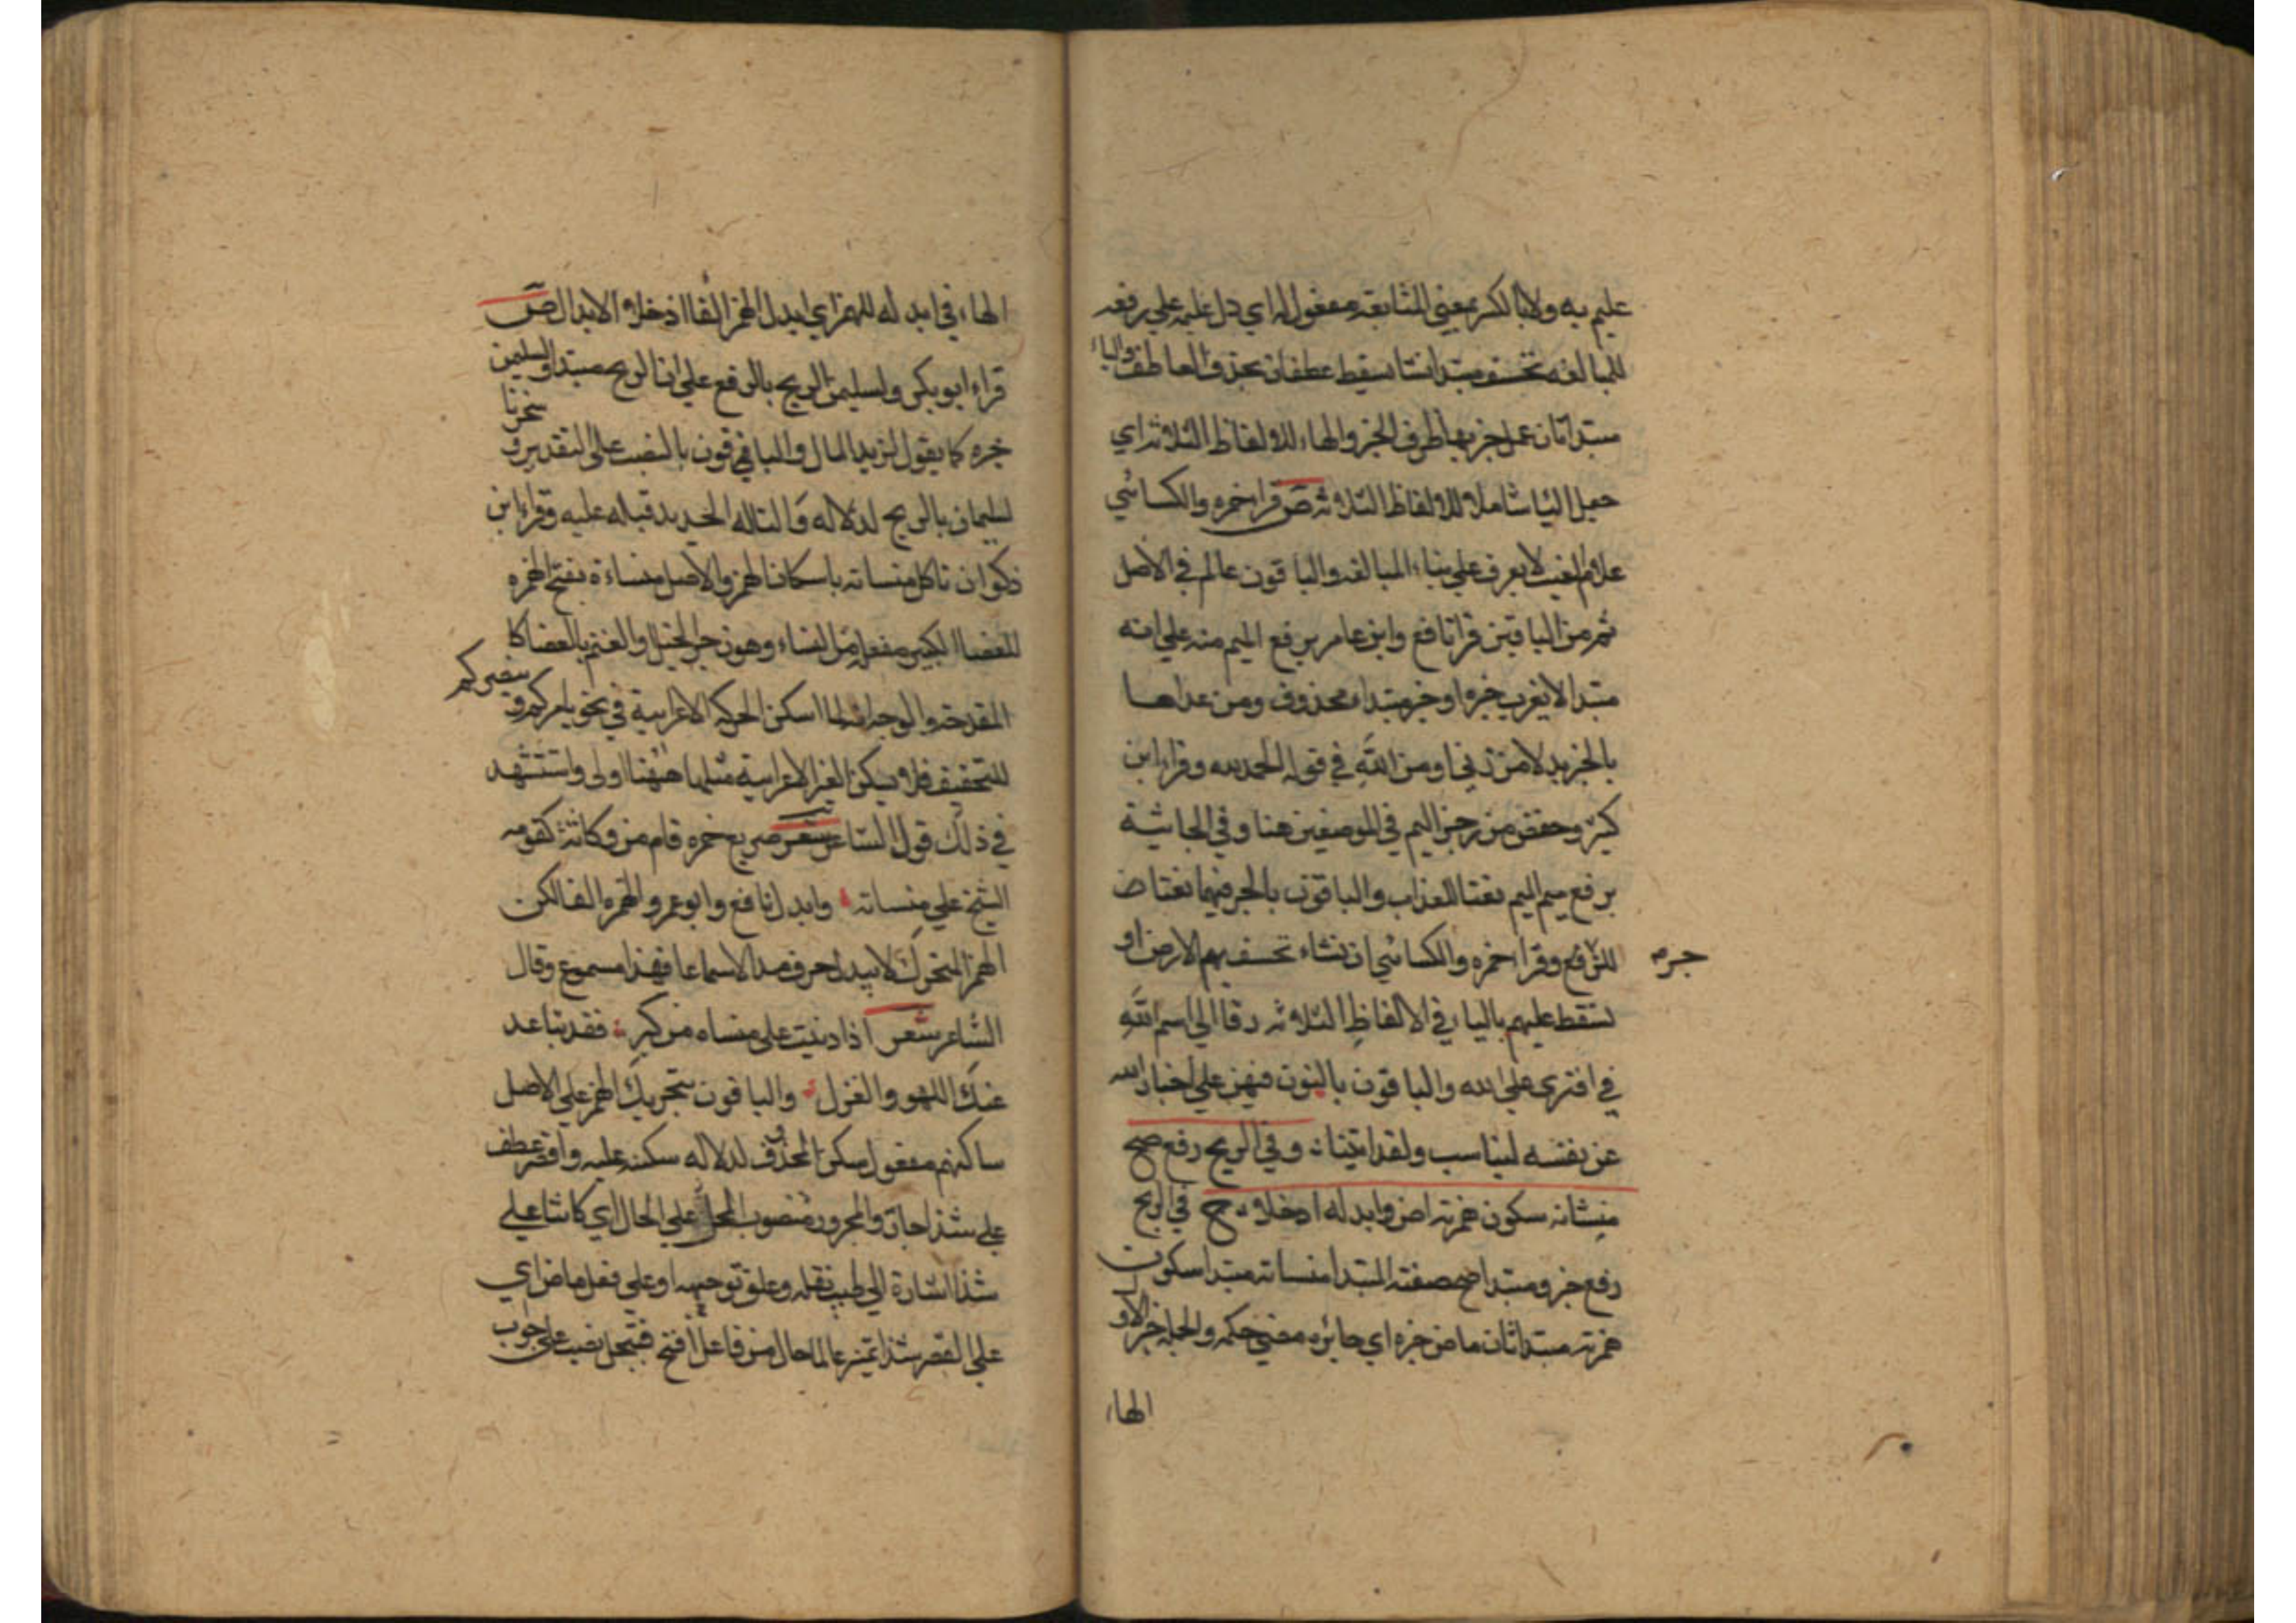 عليم به ولا بالكسر بمعني المتابعة مفعول له اي دل عليه علي رفعه
للمبالغه نخسف مبتدا نشا نسقط عطفان بحذف العاطف والياء
مبتدا ثان عمل خبر بها ظرف الخبر والهاء للالفاظ الثلاثه اي
حصل اليا شاملا للالفاظ الثلاثه ص قرا حمزه والكسائي
علام الغيب لا يعزب علي بناء المبالغه والباقون عالم في الاصل
ثم من الباقين قرا نافع وابن عامر برفع الميم منه علي انه
مبتدا لا يعزب خبره او خبر مبتداء محذوف ومن عداهما
بالجر بدلا من ربي او من الله في قوله الحمد لله وقراء ابن
كثير وحفص من رجز اليم في الموضعين هنا وفي الجاثية
برفع ميم اليم نعتا للعذاب والباقون بالجر فيهما نعتا ض
للرفع وقرا حمزه والكسائي ان نشاء نخسف بهم الارض او
جره
نسقط عليهم باليا في الالفاظ الثلاثه ردا الي اسم الله
في افتري علي الله والباقون بالنون فيهن علي اخبار الله
عن نفسه ليناسب ولقد اتينا وفي الريح رفع صح
منسانه سكون همزته ماض وابدله اذ حلا ح في الريح
رفع خبر ومبتدا صح صفته المبتدا منساته مبتدا سكون
همزته مبتدا ثان ماض خبره اي جايزه مضي حكمه والجمله خبر الاول
الهاء
الهاء في ابدله للهمز اي ابدل الهمز الفا اذ حلا الابدال ص
قراء ابو بكر ولسليمن الريح بالرفع علي ان الريح مبتدا ولسليمن
خبره كما يقول لزيد المال والباقون بالنصب علي التقدير و سخرنا
لسليمان بالريح لدلاله والنا له الحديد قبله عليه وقراء ابن
ذكوان تاكل منساته باسكان الهمز والاصل منساءة بفتح الهمزه
للعصا الكبير مفعله من النساء وهو زجر الخيل والغنم بالعصا كا
المقدحه والوجه انه لما اسكن الحركه الاعرابية في نحو يامركم و ينصركم
للتخفيف فلان يسكن الغير الاعرابية مثلما هيهنا اولي واستشهد
في ذلك قول الشاعر شعر صريع خمره قام من وكاته كقومه
الشيخ علي منساته وابدل نافع وابو عمرو الهمزه الفا لكن
الهمز المتحرك لا يبدل حرف مد الا سماعا فهذا مسموع وقال
الشاعر شعر اذا دببت علي منساه من كبر فقد تباعد
عنك اللهو والغزل والباقون بتحريك الهمز علي الاصل
مساكنهم مفعول سكن المحذوف لدلاله سكنه عليه واقصر عطف
علي شذا حال والمجرور منصوب المحل علي الحال اي كاينا علي
شذا اشارة الي طيب نقله وعلو توجيهه او علي فعل ماض اي
علي القصر شذا تميز عالما حال من فاعل افتح فتبجل نصب علي جواب